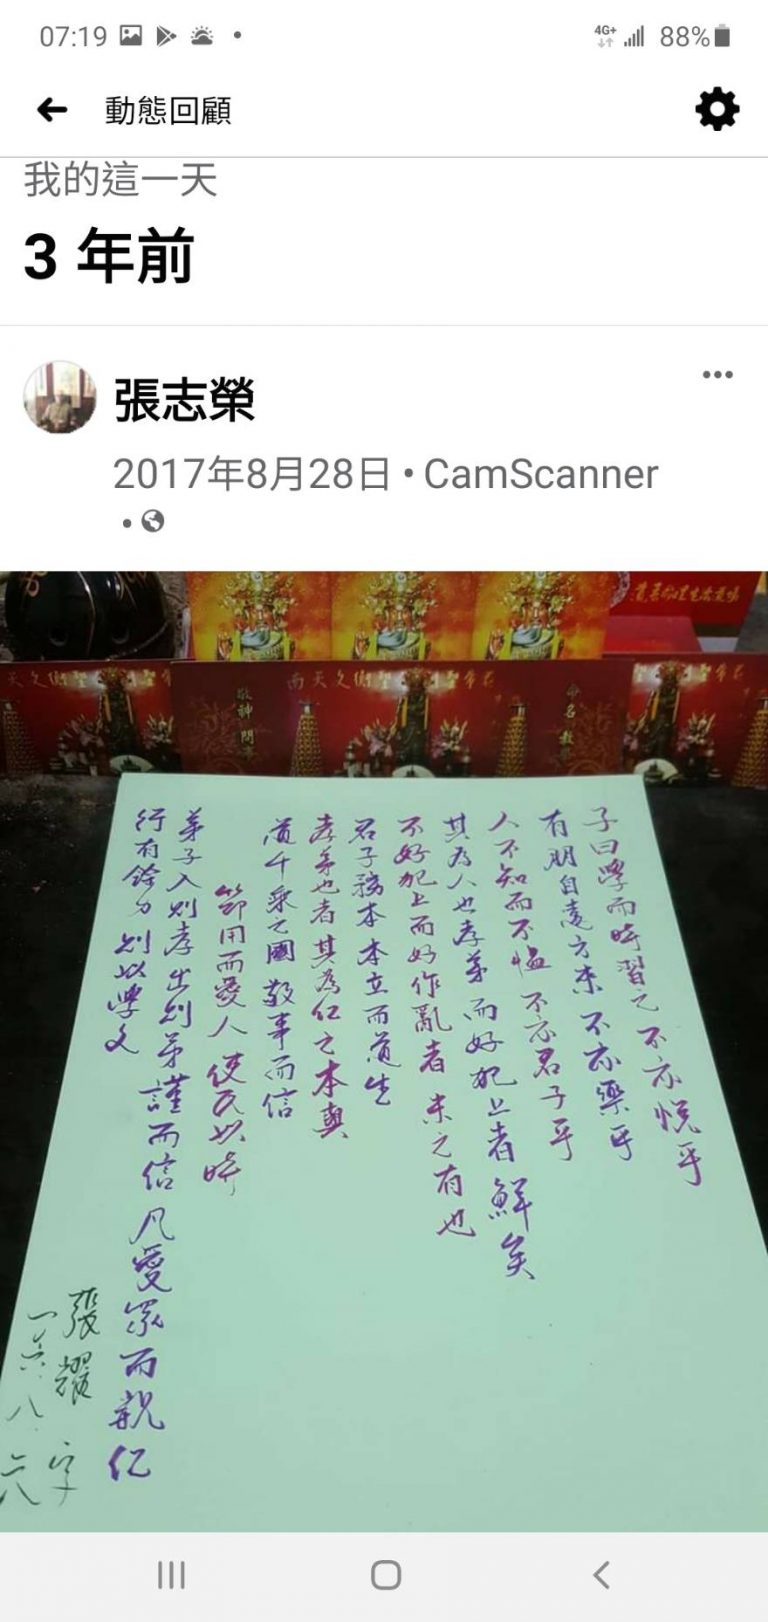 07:19
4G+ 88%
動態回顧
我的這一天
3 年前
張志榮
2017年8月28日 • CamScanner
敬神
南天文衡聖帝
命名
子曰學而時習之不亦悅乎
有朋自遠方來不亦樂乎
人不知而不慍 不亦君子乎
其為人也孝弟而好犯上者鮮矣
不好犯上而好作亂者未之有也
君子務本本立而道生
孝弟也者其為仁之本與
道千乘之國敬事而信
節用而愛人使民以時
弟子入則孝出則弟謹而信凡愛眾而親仁
行有餘力則以學文
張耀